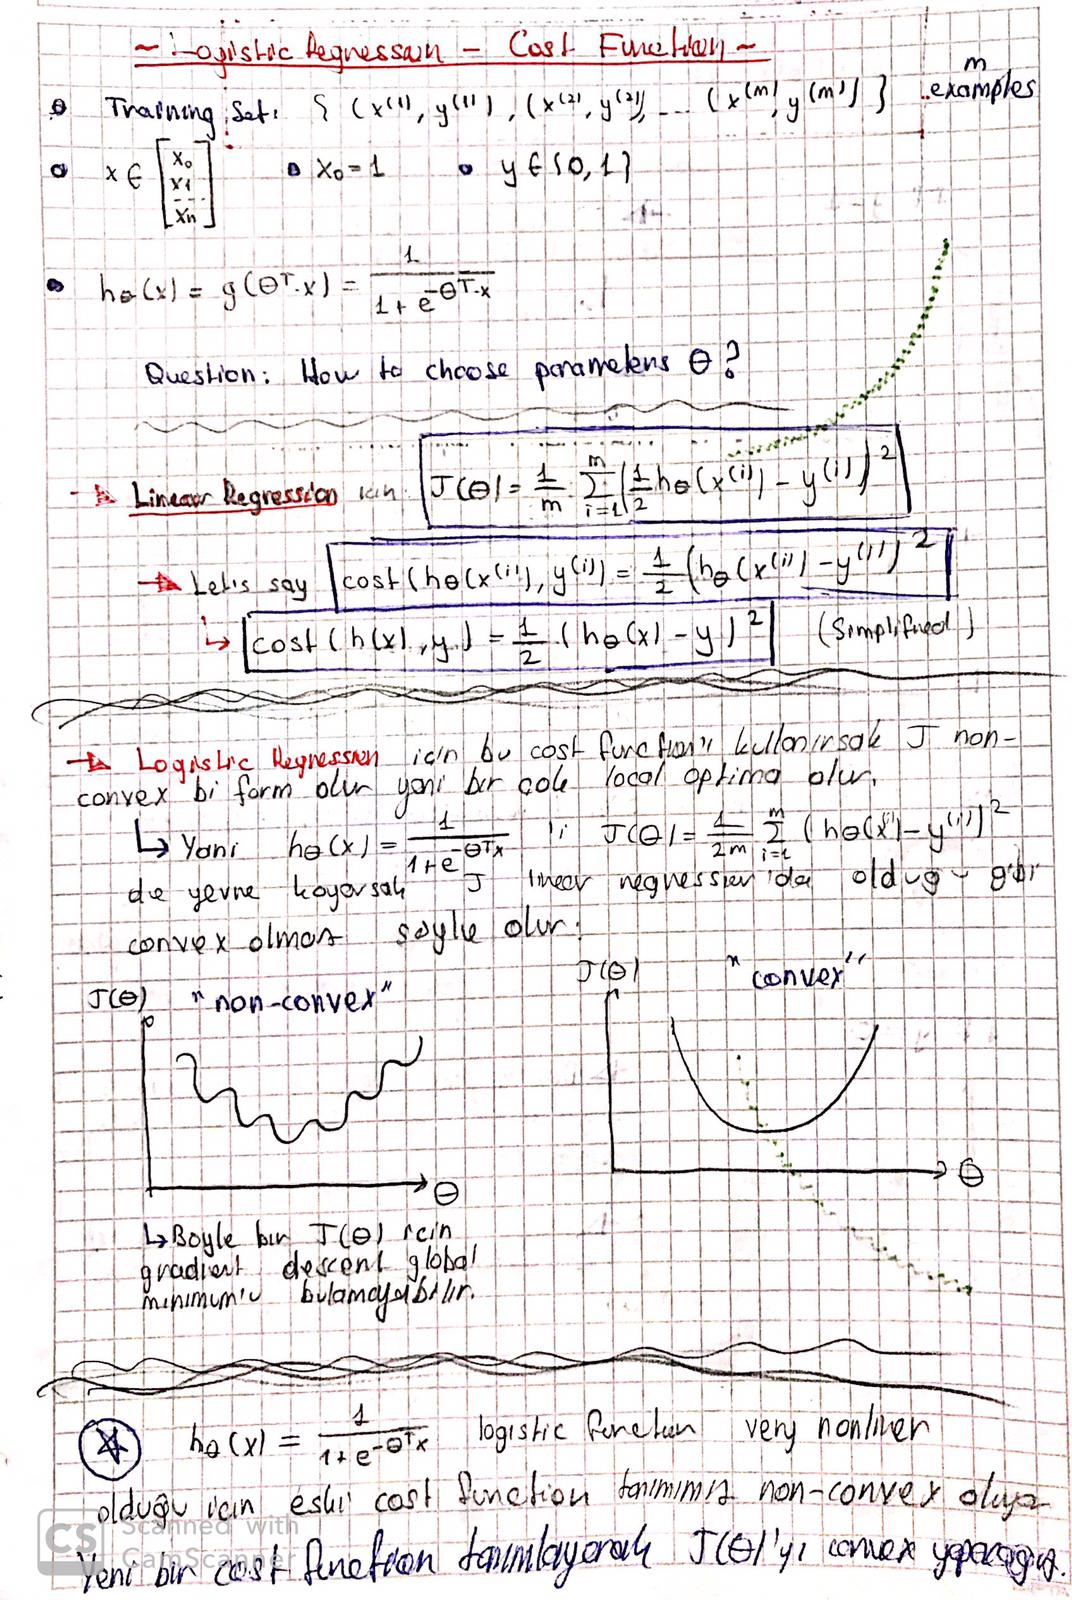 ~ Logistic Regression - Cost Function ~
Training Set: { (x⁽¹⁾, y⁽¹⁾), (x⁽²⁾, y⁽²⁾), ... (x⁽ᵐ⁾, y⁽ᵐ⁾) } m examples
x ∈ [x₀ x₁ ... xₙ] • x₀ = 1 • y ∈ {0, 1}
hθ(x) = g(θᵀ.x) = 1 / (1 + e^(-θᵀ.x))
Question: How to choose parameters θ?
Linear Regression icin J(θ) = 1/m Σ_{i=1}^{m} (1/2 hθ(x⁽ⁱ⁾) - y⁽ⁱ⁾)²
Let's say cost(hθ(x⁽ⁱ⁾), y⁽ⁱ⁾) = 1/2 (hθ(x⁽ⁱ⁾) - y⁽ⁱ⁾)²
↳ cost(h(x), y) = 1/2 (hθ(x) - y)² (Simplified)
Logistic Regression icin bu cost function'ı kullanırsak J non-
convex bi form olur yani bir cok local optima olur.
↳ Yani hθ(x) = 1 / (1+e^(-θᵀx)) 'i J(θ) = 1/2m Σ_{i=1}^{m} (hθ(xⁱ) - y⁽ⁱ⁾)²
de yerine koyarsak J linear regression'da oldugu gibi
convex olmaz soyle olur:
J(θ) "non-convex"
θ
J(θ) "convex"
θ
↳ Boyle bir J(θ) icin
gradient descent global
minimum'u bulamayabilir.
hθ(x) = 1 / (1+e^(-θᵀx)) logistic function very nonliner
olduğu icin eski cost function tanımımız non-convex oluyo
Yeni bir cost function tanımlayarak J(θ)'yı convex yapacagız.
CS Scanned with
CamScanner